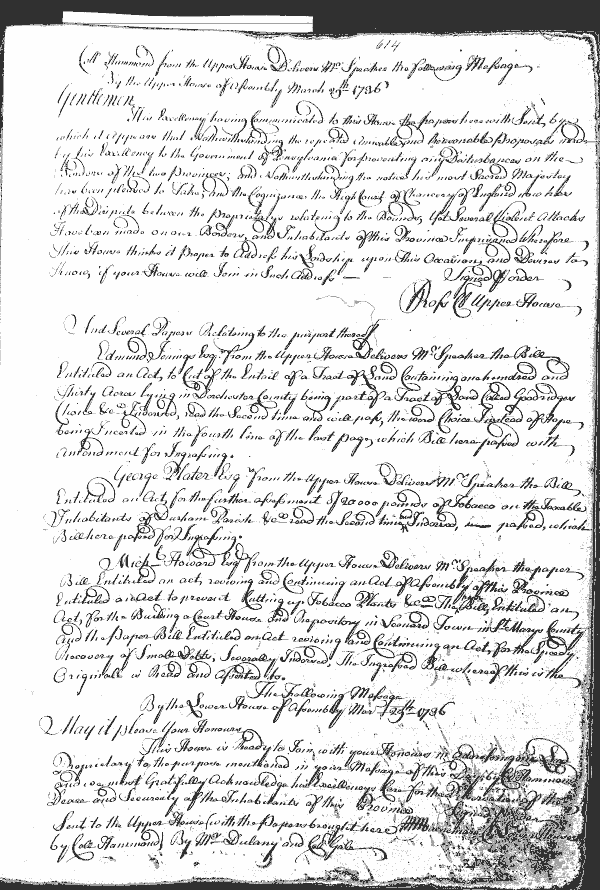 614
Coll Hammond from the Upper House Delivers Mr Speaker the following Message
By the Upper House of Assembly March 29th 1736
Gentlemen
His Excellency having Communicated to this House the papers herewith Sent, by
which it appears that Notwithstanding the repeated amicable and Reasonable proposals made
by his Excellency to the Government of Pensylvania for preventing any Disturbances on the
Borders of the two provinces; and Notwithstanding the notice his most Sacred Majesty
has been pleased to Take, and the Cognizance the High Court of Chancery of England now has
of the Dispute between the proprietarys relateing to the Bounds, Yet Several Violent Attacks
have been made on our Borders, and Inhabitants of this Province Imprisoned Wherefore
this House thinks it proper to Address his Lordship upon this Occasion, and Desires to
know if your House will Join in Such Address
Signed p Order
Ross Cl Upper House
And Several Papers Relateing to the purport thereof
Edmund Jenings Esq from the Upper House Delivers Mr Speaker the Bill
Entituled an Act, to Cut of the Entail of a Tract of Land Containing one hundred and
thirty Acres lying in Dorchester County being part of a Tract of Land Called Goodridges
Choice &ca Indorsed, read the Second time and will pass, the word Choice Instead of Hope
being Inserted in the fourth line of the last page, which Bill here passed with
Amendment for Ingrossing.
George Plater Esq from the Upper House Delivers Mr Speaker the Bill
Entituled an Act, for the further assessment of 20000 pounds of Tobacco on the Taxable
Inhabitants of Durham Parish &ca read the Second time Indorsed, passed, which
Bill here passed for Ingrossing.
Mich Howard Esq from the Upper House Delivers Mr Speaker the paper
Bill Entituled an act, reviving and Continuing an Act of Assembly of this Province
Entituled an Act to prevent Cutting up Tobacco Plants &ca The Bill, Entituled an
Act, for the Building a Court House and Repository in Leonard Town in St Marys County
And the Paper Bill Entituled an Act reviving and Continuing an Act, for the Speedy
Recovery of Small Debts, Severally Indorsed, The Ingrossed Bill whereof this is the
Originall is Read and Assented to.
The Following Message
By the Lower House of Assembly Mar 29th 1736
May it please Your Honours
This House is Ready to Join with your Honours in addressing
Proprietary to the purpose mentioned in your Message of this Day by Coll Hammond
and we most Gratefully Acknowledge his Excellencys Care for the preservation of the
Peace and Security of the Inhabitants of this Province
Sent to the Upper House with the Papers brought here
by Coll Hammond, By Mr Dulany and Col Gale